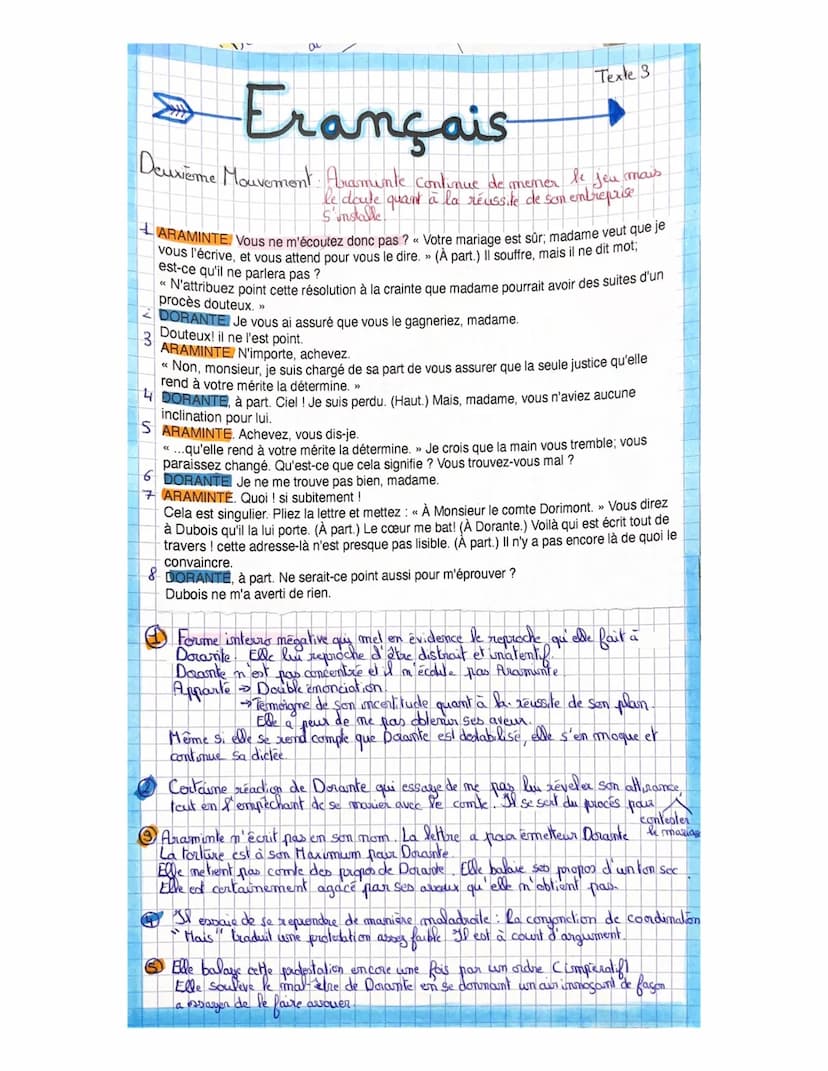 Texte 3
Français
Deuxième Mouvement : Araminte continue de mener le jeu mais
le doute quant à la réussite de son entreprise
s'installe.
1 ARAMINTE. Vous ne m'écoutez donc pas ? « Votre mariage est sûr; madame veut que je
vous l'écrive, et vous attend pour vous le dire. » (À part.) Il souffre, mais il ne dit mot;
est-ce qu'il ne parlera pas ?
« N'attribuez point cette résolution à la crainte que madame pourrait avoir des suites d'un
procès douteux. »
2 DORANTE. Je vous ai assuré que vous le gagneriez, madame.
3 Douteux! il ne l'est point.
ARAMINTE. N'importe, achevez.
« Non, monsieur, je suis chargé de sa part de vous assurer que la seule justice qu'elle
rend à votre mérite la détermine. »
4 DORANTE, à part. Ciel ! Je suis perdu. (Haut.) Mais, madame, vous n'aviez aucune
inclination pour lui.
5 ARAMINTE. Achevez, vous dis-je.
« ...qu'elle rend à votre mérite la détermine. » Je crois que la main vous tremble; vous
paraissez changé. Qu'est-ce que cela signifie ? Vous trouvez-vous mal ?
6 DORANTE. Je ne me trouve pas bien, madame.
7 ARAMINTE. Quoi ! si subitement !
Cela est singulier. Pliez la lettre et mettez : « À Monsieur le comte Dorimont. » Vous direz
à Dubois qu'il la lui porte. (À part.) Le cœur me bat! (À Dorante.) Voilà qui est écrit tout de
travers ! cette adresse-là n'est presque pas lisible. (À part.) Il n'y a pas encore là de quoi le
convaincre.
8 DORANTE, à part. Ne serait-ce point aussi pour m'éprouver ?
Dubois ne m'a averti de rien.
1 Forme interro négative qui met en évidence le reproche qu'elle fait à
Dorante. Elle lui reproche d'être distrait et inatentif.
Dorante n'est pas concentré et il n'écoute pas Araminte.
Apparté => Double énonciation.
→ Témoigne de son incertitude quant à la réussite de son plan.
Elle a peur de ne pas obtenir ses aveux.
Même si elle se rend compte que Dorante est déstabilisé, elle s'en moque et
continue sa dictée.
2 Certaine réaction de Dorante qui essaye de ne pas lui révéler son attirance,
tout en l'empêchant de se marier avec le comte. Il se sert du procès pour
contester
le mariage
3 Araminte n'écrit pas en son nom. La lettre a pour émetteur Dorante
La torture est à son Maximum pour Dorante.
Elle ne tient pas comte des propos de Dorante. Elle balaye ses propos d'un ton sec.
Elle est certainement agacé par ses aveux qu'elle n'obtient pas.
4 Il essaie de se reprendre de manière maladroite : la conjonction de coordination
"Mais" traduit une protestation assez faible. Il est à court d'argument.
5 Elle balaye cette protestation encore une fois par un ordre (impératif)
Elle soulève le mal-être de Dorante en se donnant un air innoçant de façon
a essayer de le faire avouer.